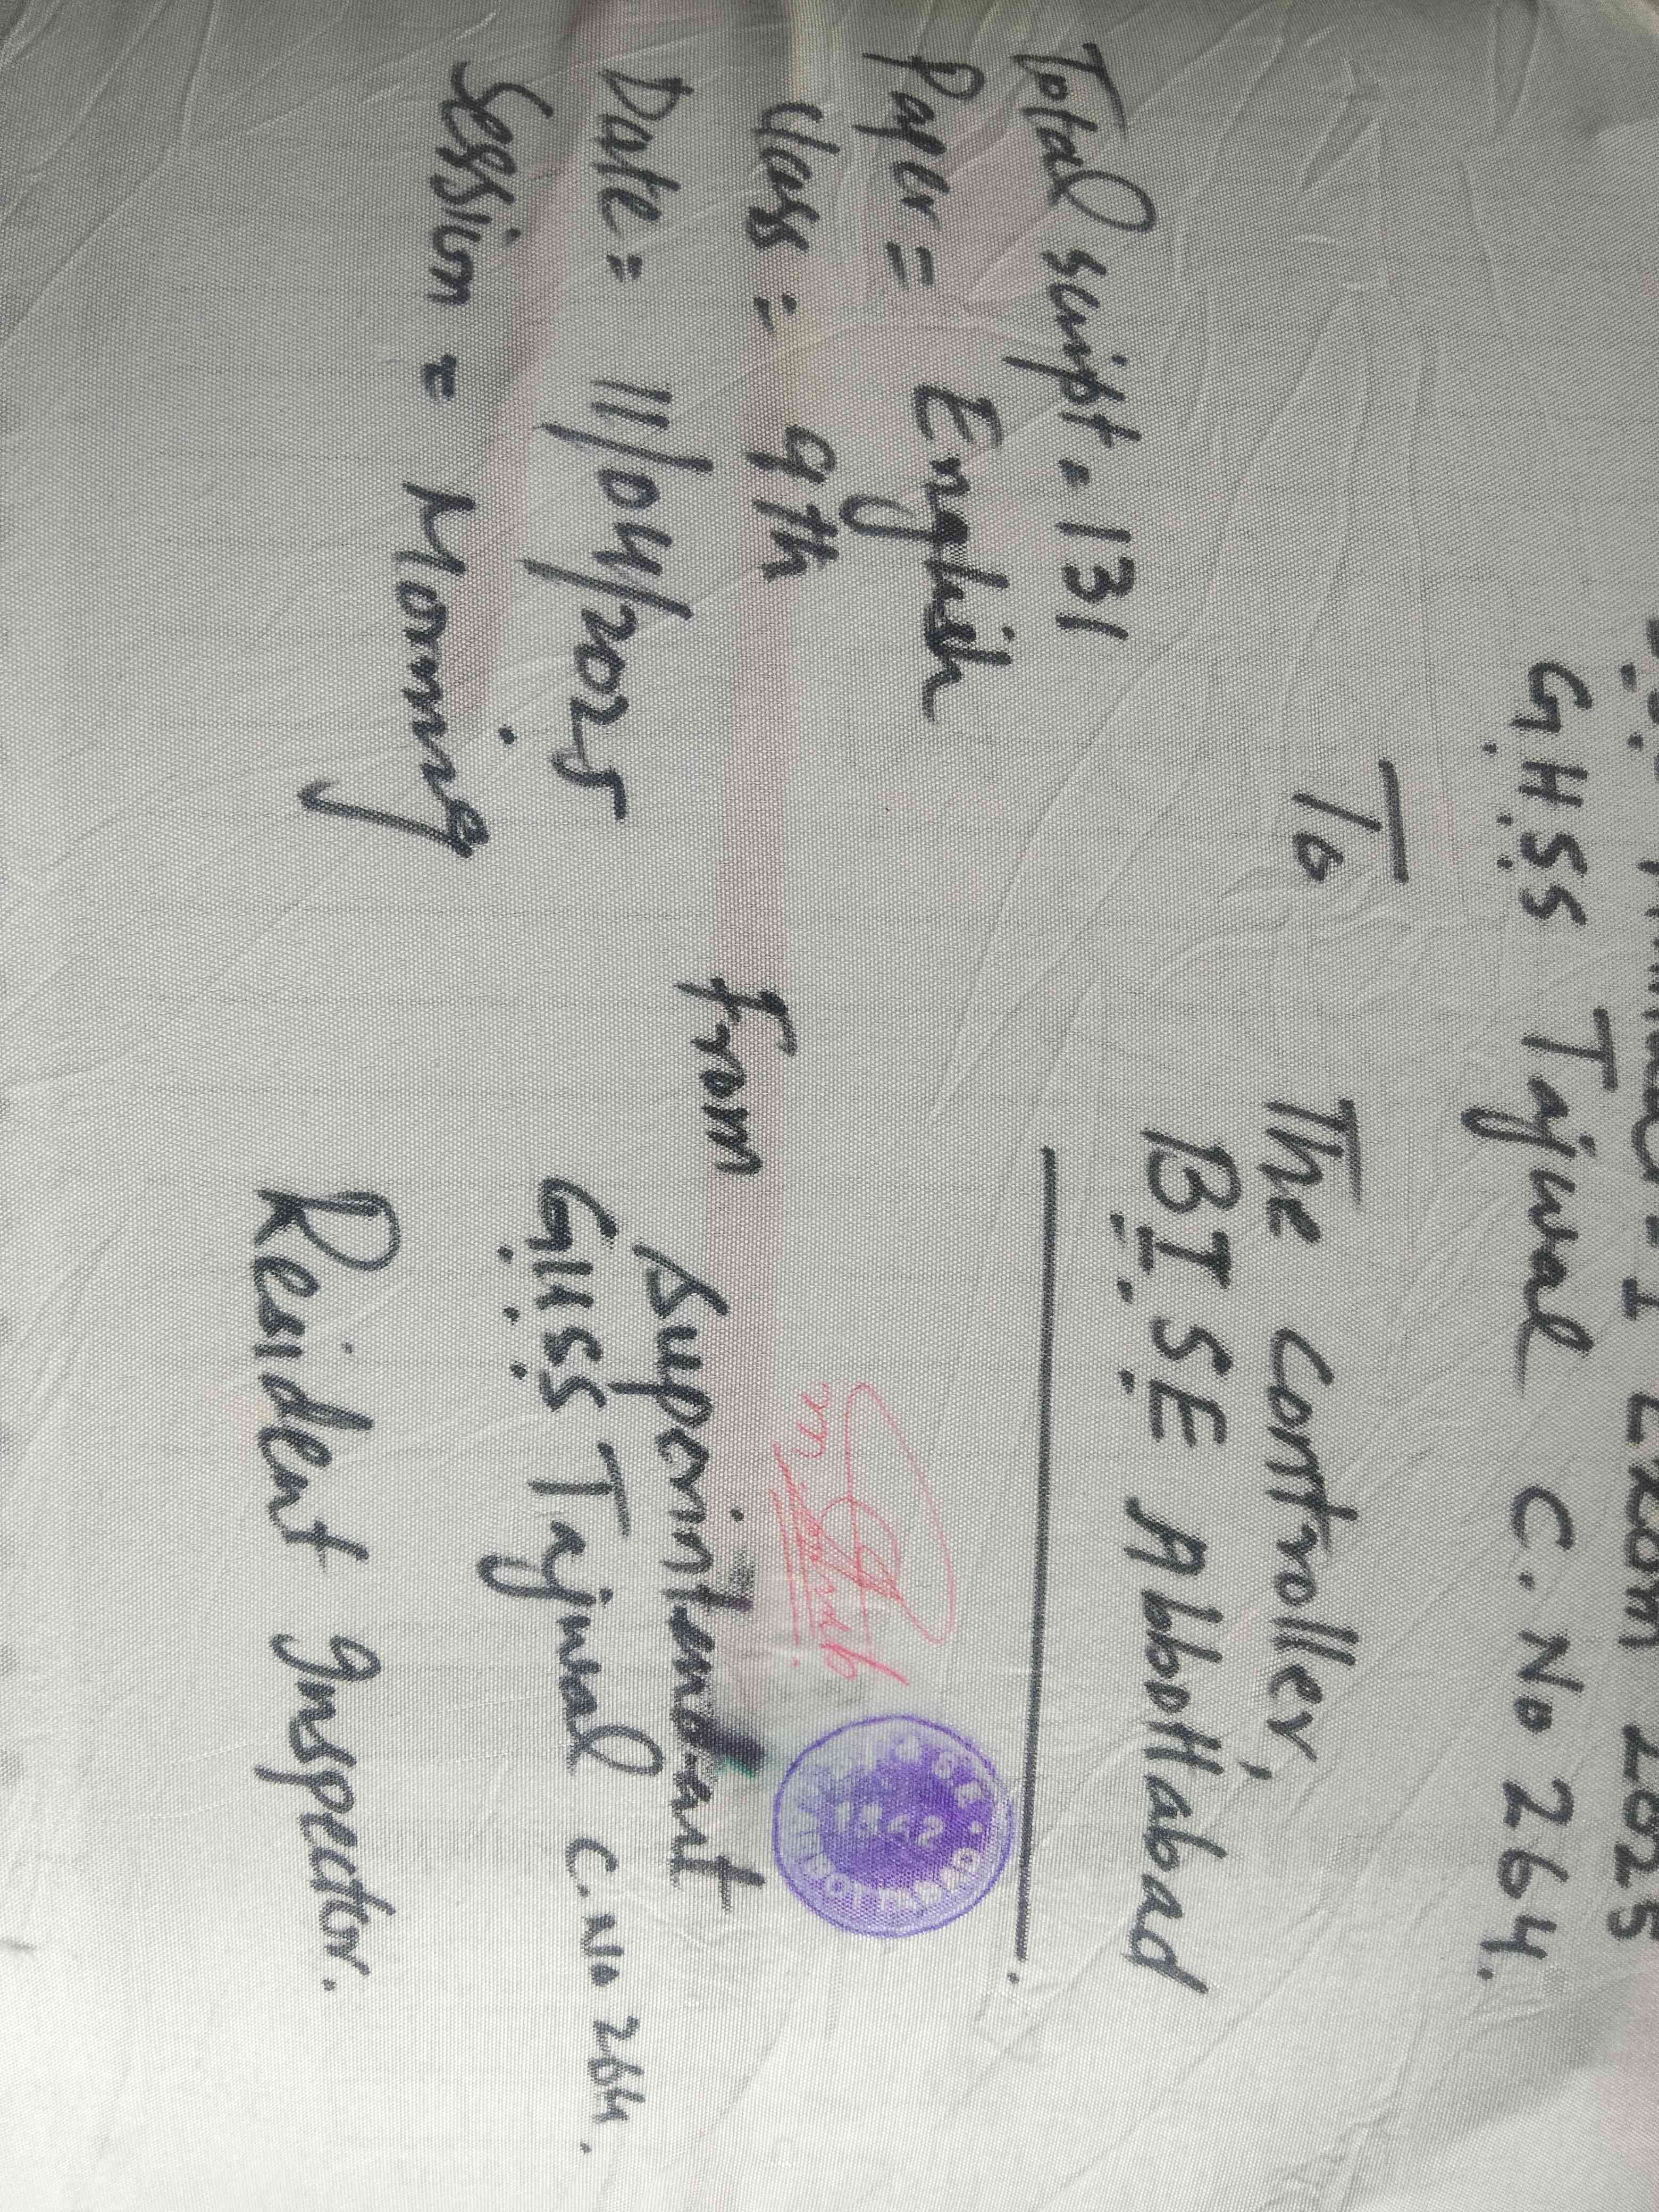 I Exam 2025
G.H.S.S Tajwal C.No 264.
To
The Controller,
B.I.S.E Abbottabad
Total script = 131
Paper = English
Class = 9th
Date = 11/04/2025
Session = Morning
1342
From
Suporintendant
G.H.S.S Tajwal C.No 264.
Resident Inspector.